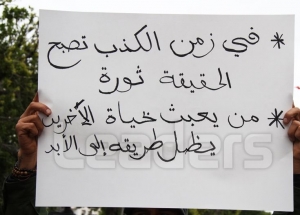 * في زمن الكذب تصبح
الحقيقة ثورة
* من يعبث حياة الآخرين
يظل طريقه إلى الأبد
Leaders